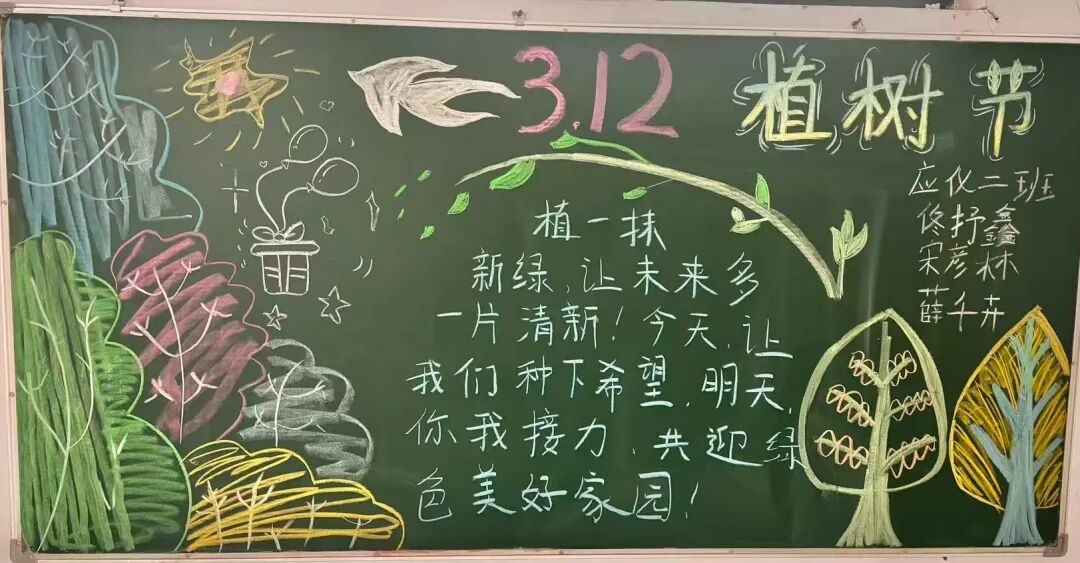 3.12 植树节
应化二班
佟抒鑫
宋彦林
薛千卉
植一抹
新绿,让未来多
一片清新!今天,让
我们种下希望,明天,
你我接力,共迎绿
色美好家园!